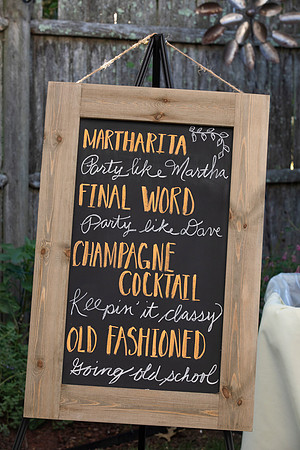 MARTHARITA
Party like Martha
FINAL WORD
Party like Dave
CHAMPAGNE
COCKTAIL
Keepin' it classy
OLD FASHIONED
Going old school